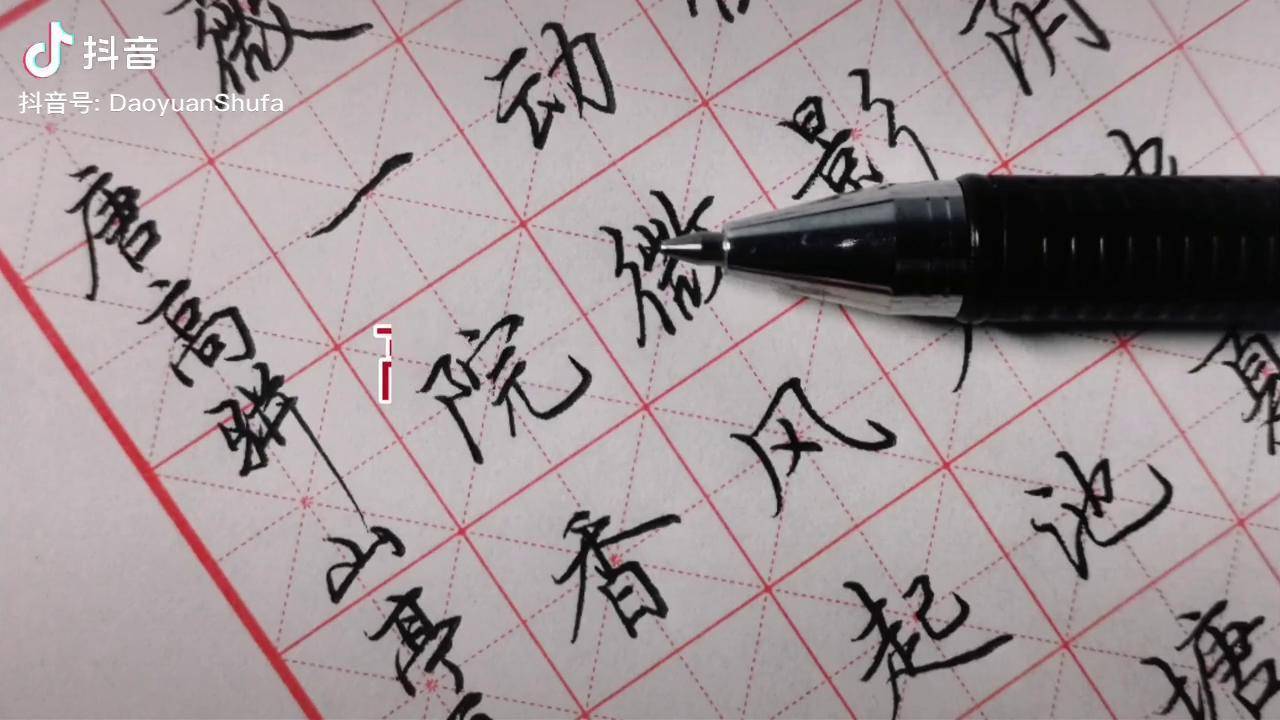 抖音
抖音号: DaoyuanShufa
阴
影池塘
动微风起
薇一院香
唐高骈山亭